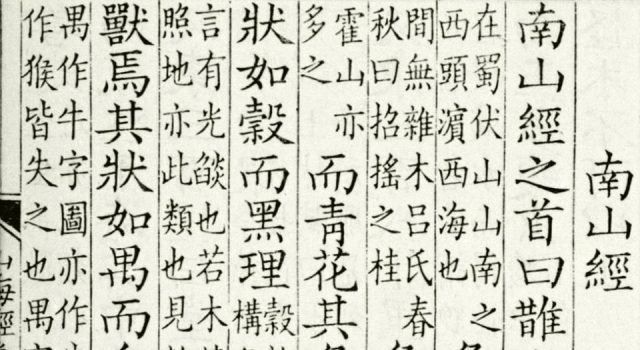 南山經
南山經之首曰䧿
在蜀伏山山南之
西頭濵西海也
間無雜木呂氏春
秋曰招搖之桂
霍山亦
多之
而青花其
狀如榖而黑理
榖
構
言有光燄也若木
照地亦此類也見
獸焉其狀如禺而
禺作牛字圖亦作
作猴皆失之也禺
山海經